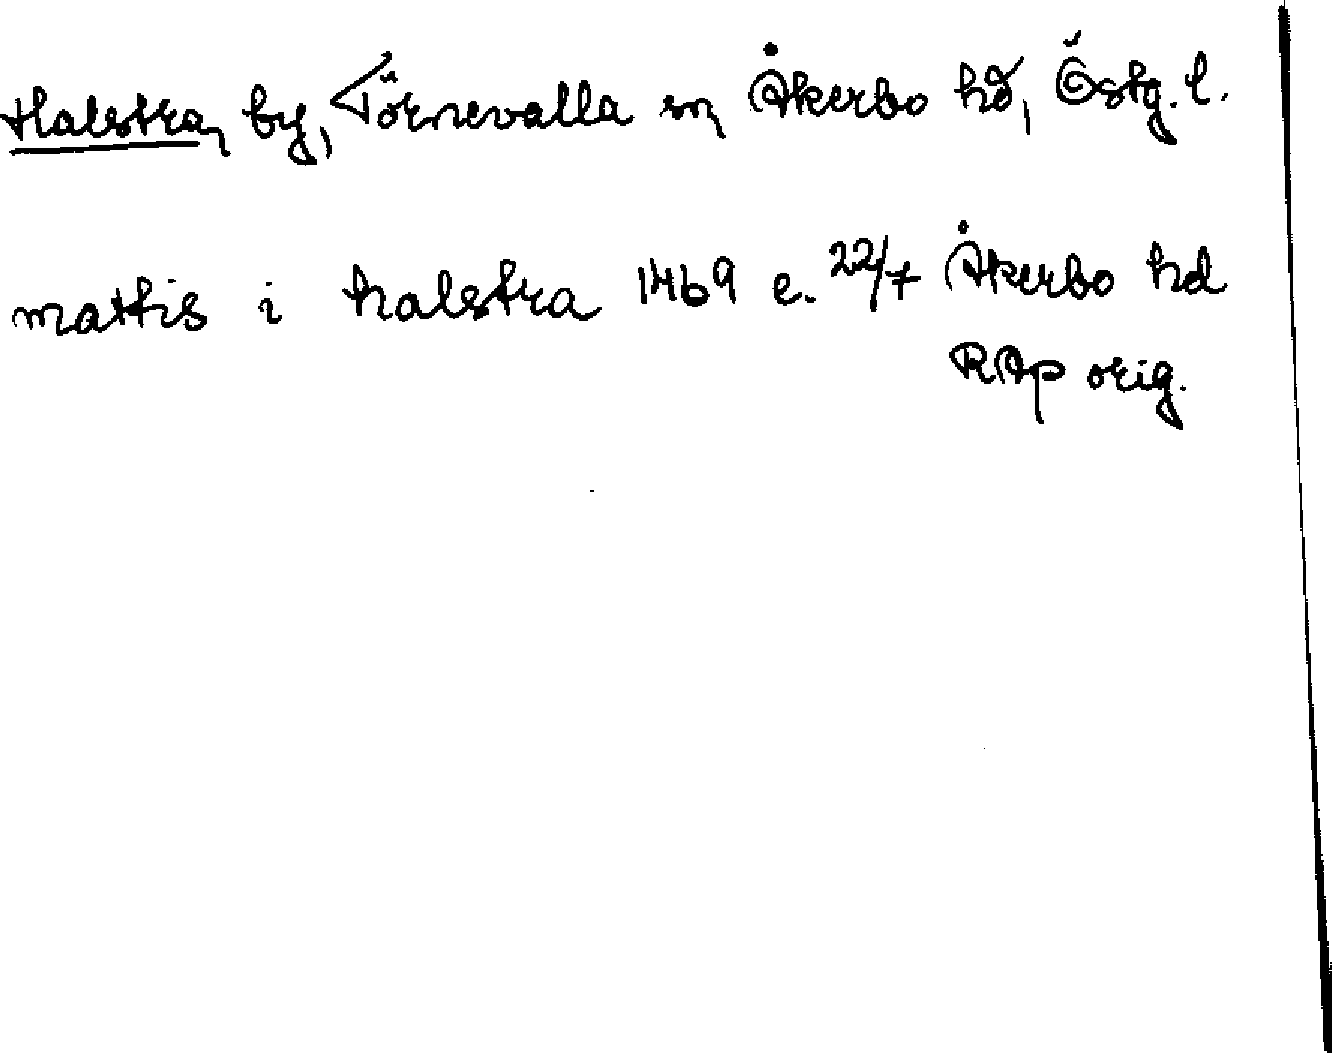 Halstra, by, Törnevalla sn, Åkerbo hd, Östg. l.
mattis i halstra 1469 e. 22/7 Åkerbo hd
RAp orig.